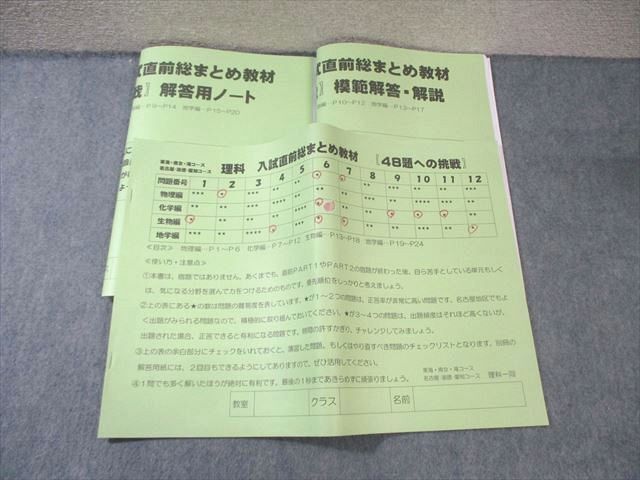 試直前総まとめ教材
戦』 解答用ノート
編…P9〜P14 地学編…P15〜P20
式直前総まとめ教材
模範解答・解説
編…P10〜P12 地学編…P13〜P17
東海・南女・滝コース
名古屋・南徳・愛知コース
理科 入試直前総まとめ教材 『48題への挑戦』
問題番号 1 2 3 4 5 6 7 8 9 10 11 12
物理編
化学編
生物編
地学編
≪目次≫ 物理編…P1〜P6 化学編…P7〜P12 生物編…P13〜P18 地学編…P19〜P24
≪使い方・注意点≫
①本書は、宿題ではありません。あくまでも、直前PART1やPART2の問題が終わった後、自ら苦手としている単元もしく
は、気になる分野を選んで力をつけるためのものです。優先順位をしっかりと考えましょう。
②上の表にある★の数は問題の難易度を表しています。★が1〜2つの問題は、正答率が非常に高い問題です。名古屋地区でもよ
く出題がみられる問題なので、積極的に取り組んでおいてください。★が3〜4つの問題は、出題頻度はそれほど高くないが、
出題された場合、正答できると有利になる問題です。時間の許すかぎり、チャレンジしてみましょう。
③上の表の余白部分にチェックをいれておくと、演習した問題、もしくはやり直すべき問題のチェックリストとなります。別冊の
解答用紙には、2回目もできるようにしてありますので、ぜひ活用してください。
④1問でも多く解いたほうが絶対に有利です。最後の1秒まであきらめずに頑張りましょう。
東海・南女・滝コース
名古屋・南徳・愛知コース 理科一同
教室 クラス 名前